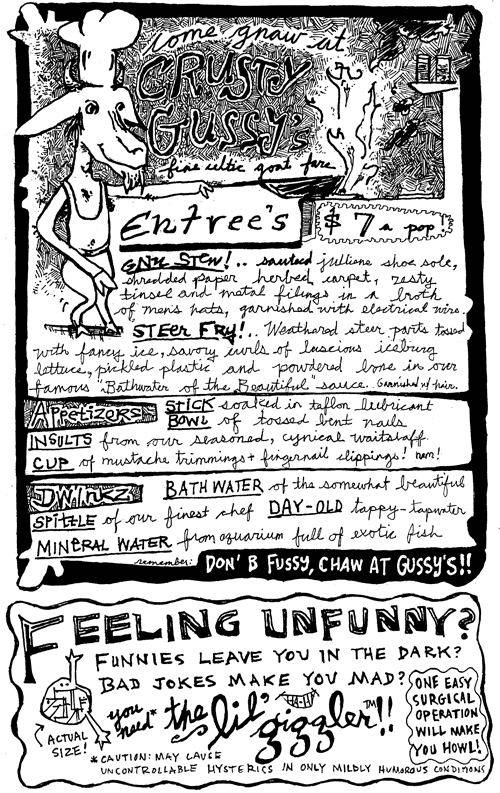 come gnaw at
CRUSTY
GUSSY'S
fine celtic goat fare
Entree's
$7 a pop!
GNU STEW!.. sauteed julliene shoe sole,
shredded paper herbed carpet, zesty
tinsel and metal filings in a broth
of men's hats, garnished with electrical wire.
STEER FRY!.. Weathered steer parts tossed
with fancy ice, savory curls of luscious iceburg
lettuce, pickled plastic and powdered bone in our
famous "Bathwater of the Beautiful" sauce. Garnished w/ hair.
APPETIZERS STICK soaked in teflon lubricant
BOWL of tossed bent nails
INSULTS from our seasoned, cynical waitstaff
CUP of mustache trimmings + fingernail clippings! num!
DWINKZ BATH WATER of the somewhat beautiful
SPITTLE of our finest chef DAY-OLD tappy-tapwater
MINERAL WATER from aquarium full of exotic fish
remember: DON' B FUSSY, CHAW AT GUSSY'S!!
FEELING UNFUNNY?
FUNNIES LEAVE YOU IN THE DARK?
BAD JOKES MAKE YOU MAD?
you need* the lil' giggler™!!
ACTUAL SIZE!
ONE EASY
SURGICAL
OPERATION
WILL MAKE
YOU HOWL!
*CAUTION: MAY CAUSE
UNCONTROLLABLE HYSTERICS IN ONLY MILDLY HUMOROUS CONDITIONS